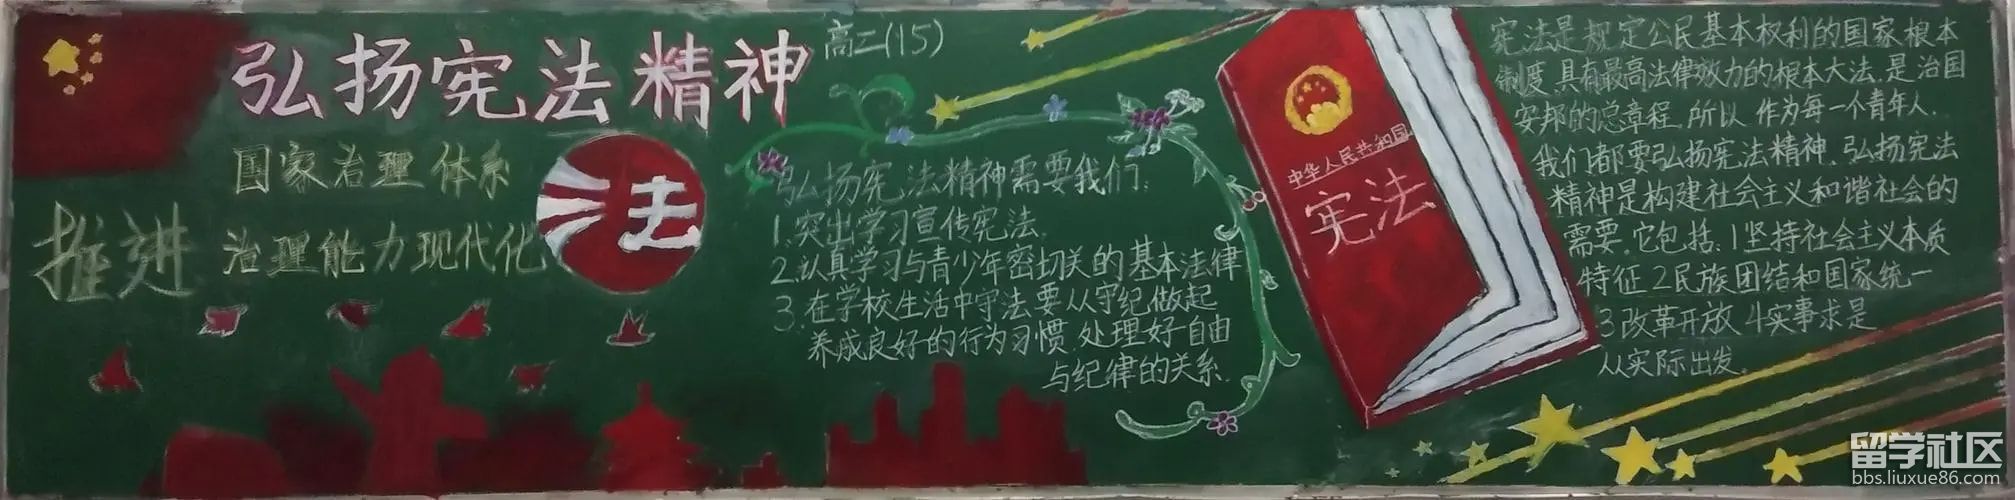 弘扬宪法精神
高二(15)
国家治理体系
推进
治理能力现代化
法
弘扬宪法精神需要我们:
1.突出学习宣传宪法.
2.认真学习与青少年密切关的基本法律
3.在学校生活中守法要从守纪做起
养成良好的行为习惯.处理好自由
与纪律的关系.
中华人民共和国
宪法
宪法是规定公民基本权利的国家根本
制度,具有最高法律效力的根本大法.是治国
安邦的总章程.所以作为每一个青年人.
我们都要弘扬宪法精神.弘扬宪法
精神是构建社会主义和谐社会的
需要.它包括:1坚持社会主义本质
特征2民族团结和国家统一
3改革开放4实事求是
从实际出发。
留学社区
bbs.liuxue86.com